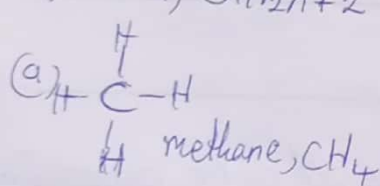 H
(a) H - C - H
H methane, CH4